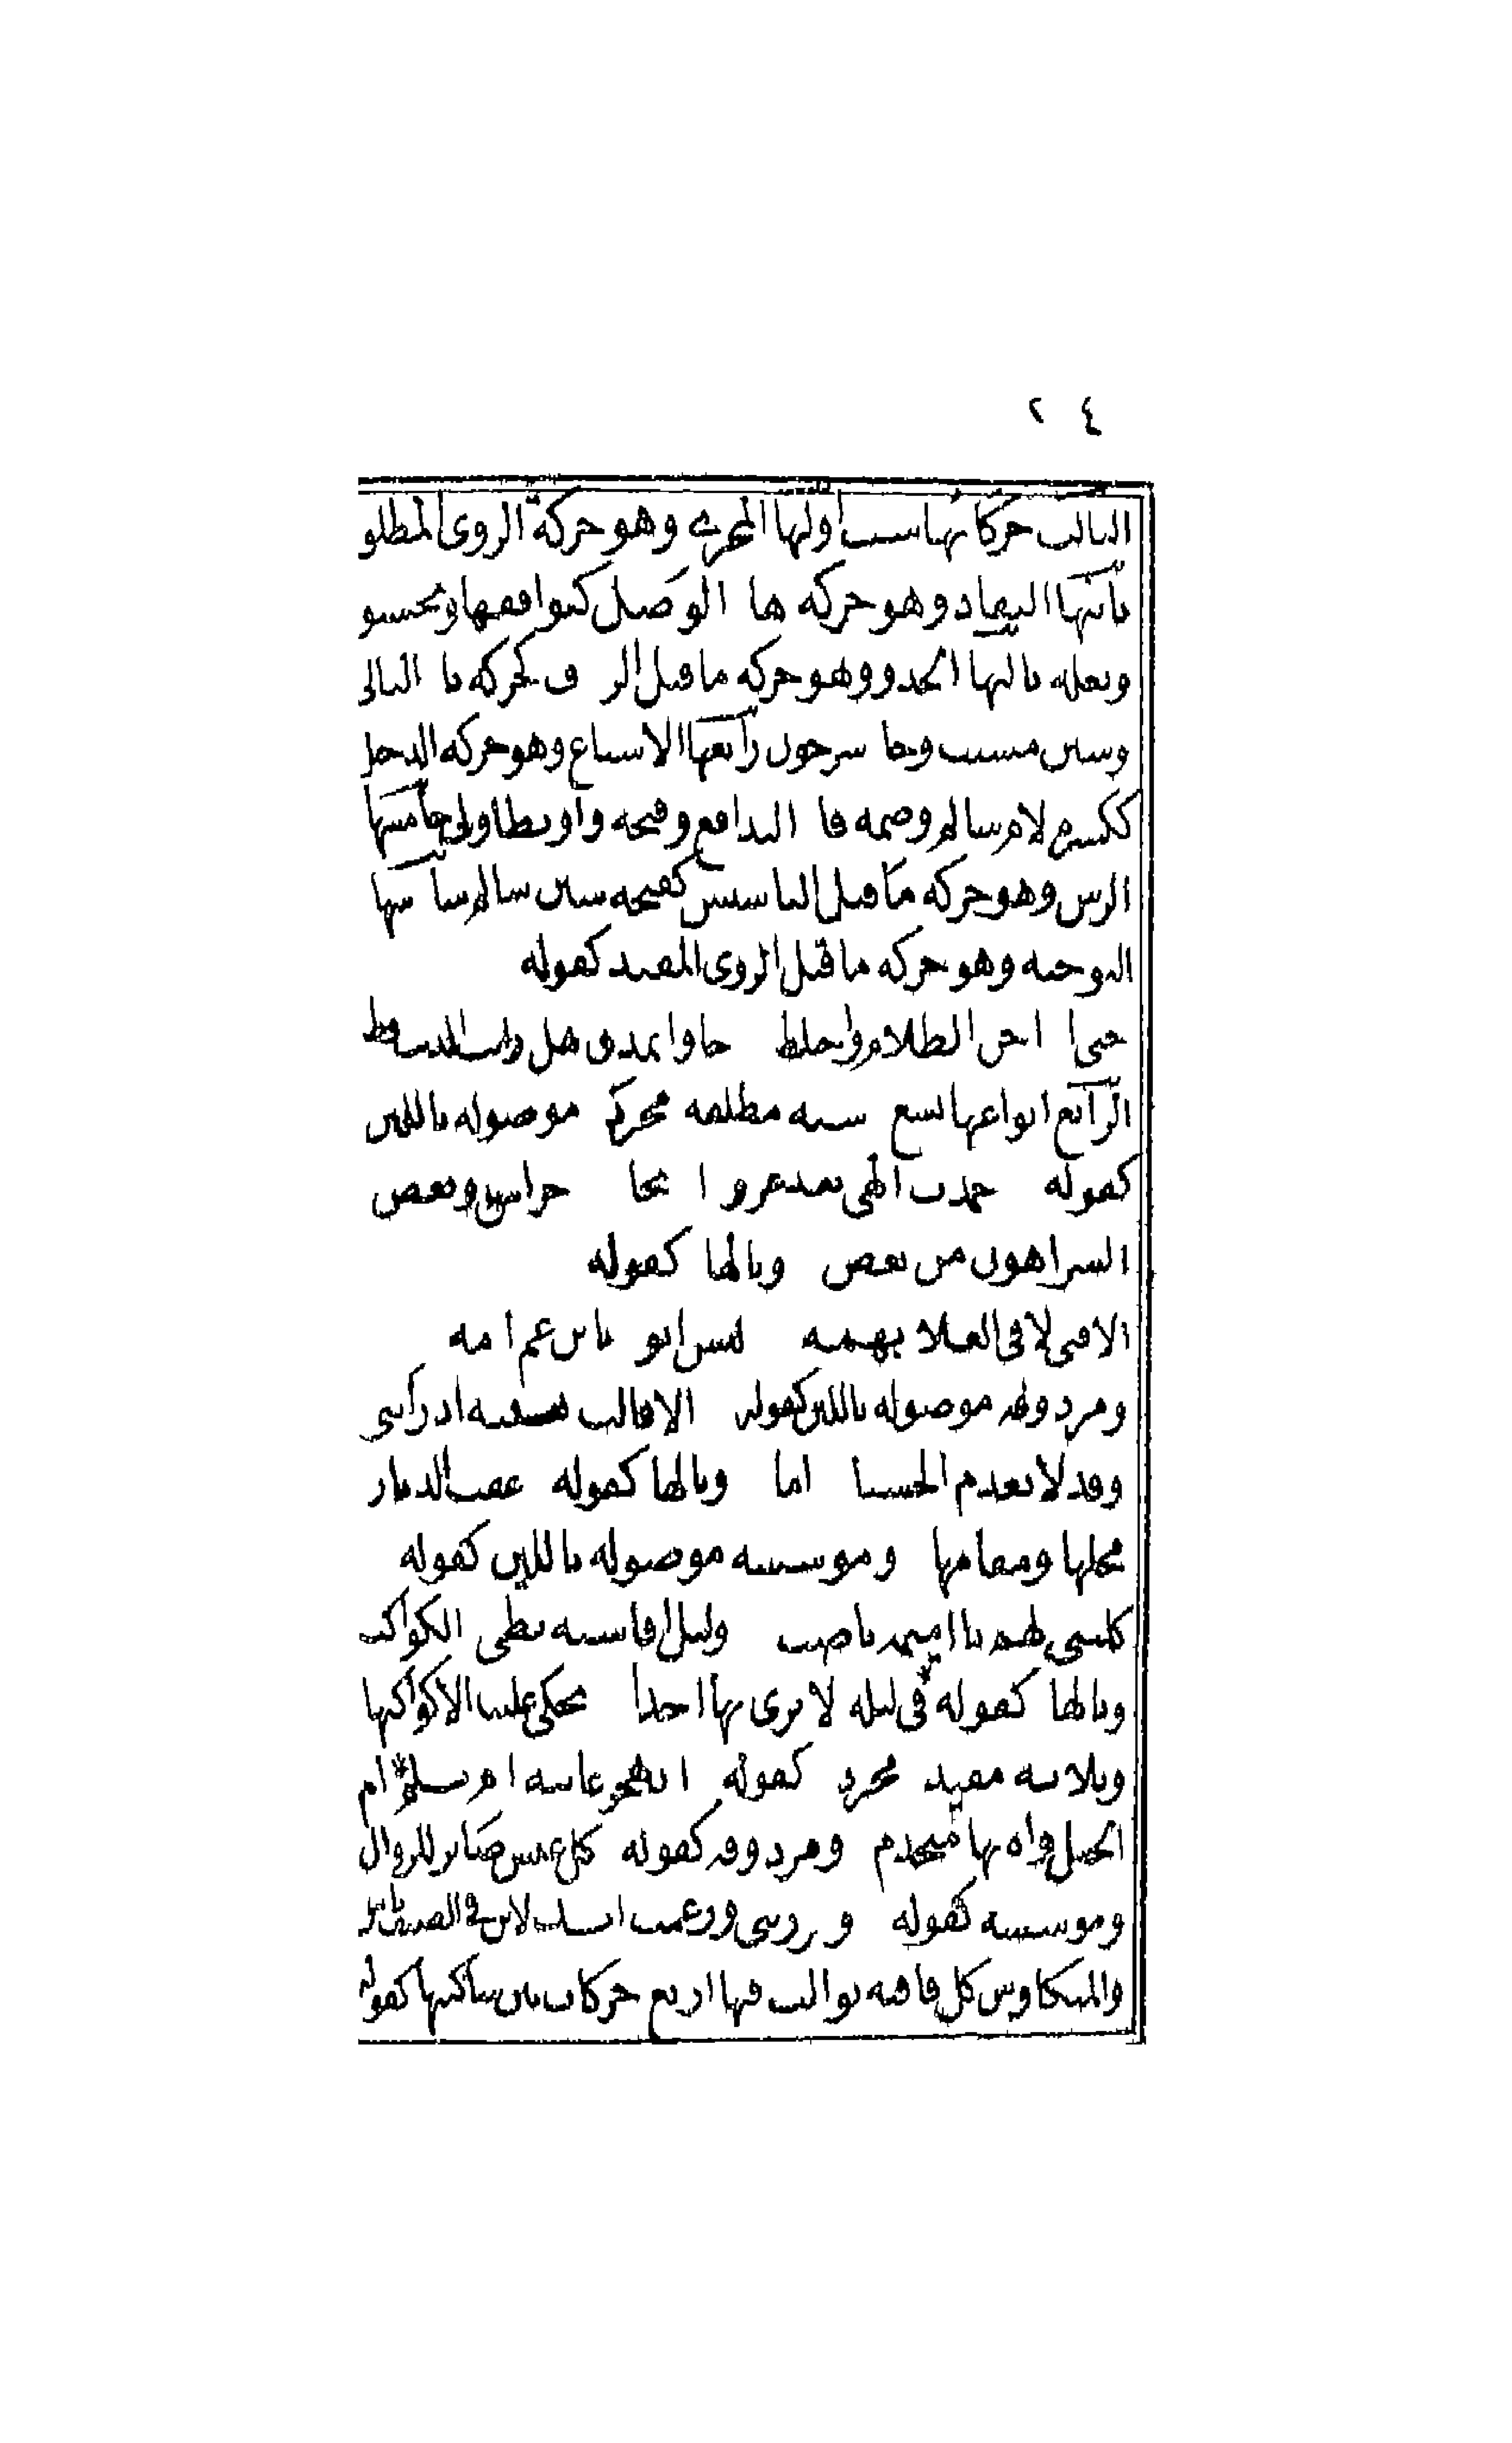 ٢ ٤
الثالث حركاتها ست اولها المجرى وهو حركة الروى المطلق
ثانيها النفاد وهو حركة ها الوصل كيوافقها وتحسنو
ونعله ثالثها الحذو وهو حركة ما قبل الردف كحركة با البالى
وشين مشيب وحا سرحوب رابعها الاشباع وهو حركة الدخيل
ككسرة لام سالم وضمة فا التدافع وفتحة واو تطاولى خامسها
الرس وهو حركة ما قبل التاسيس كفتحة سين سالم سادسها
التوجيه وهو حركة ما قبل الروى المقيد كقوله
حتى اذا جن الظلام واختلط جاوا بمذق هل رايت الذيب قط
الرابع انواعها تسع ستة مطلقة مجردة موصولة باللين
كقوله حمدت الهى بعد عروة اذ نجا خراش وبعض
الشر اهون من بعض وبالها كقوله
الا فتى لاقى العلا بهمه ليس ابوه بابن عم امه
ومردوفة موصولة باللين كقوله الا قالت بثينة اذ راتنى
وقد لا تعدم الحسنا ذاما وبالها كقوله عفت الديار
محلها ومقامها وموسسة موصولة باللين كقوله
كلينى لهم يا اميمة ناصب وليل اقاسيه بطى الكواكب
وبالها كقوله فى ليلة لا نرى بها احدا يحكى علينا الا كواكبها
وثلاثة مقيدة مجردة كقوله اتهجر غانية ام تلم ام
الحبل واه بها منجذم ومردوفة كقوله كل عيش صاير للزوال
وموسسة كقوله وغررتنى وزعمت انك لابن فى الصيف تامر
والمتكاوس كل قافية توالت فيها اربع حركات بين ساكنيها كقوله